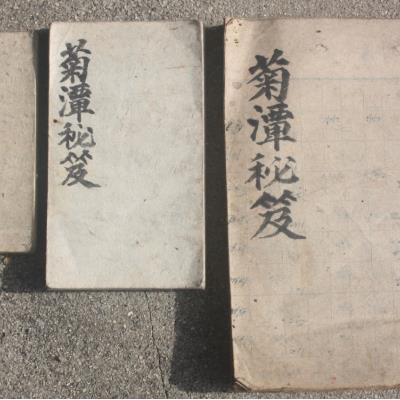 菊潭秘笈
菊潭秘笈